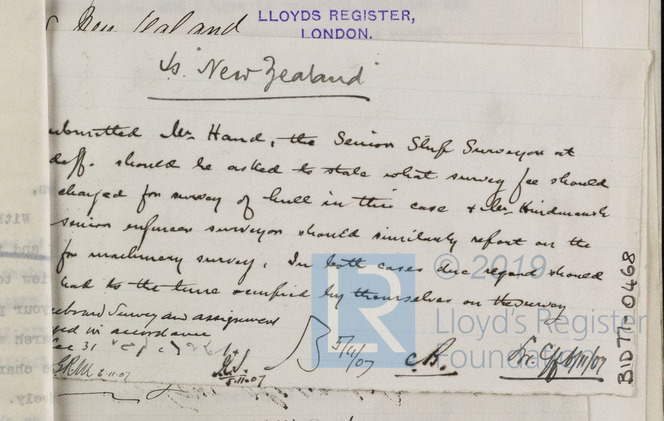 New Zealand
LLOYDS REGISTER,
LONDON.
"New Zealand"
ubmitted Mr Hand, the Senior Ship Surveyor at
diff. should be asked to state what survey fee should
charged for survey of hull in this case & Mr Hindmarsh
senior engineer surveyor should similarly report on the
for machinery survey. In both cases due regard should
had to the time occupied by themselves on the survey
eeboard Survey and assignment
ged in accordance
31
G.R.M. 6.11.07
5.11.07
5/11/07
C.B.
5/11/07
© 2019
LR
Lloyd's Register
Foundation
BID77-0468